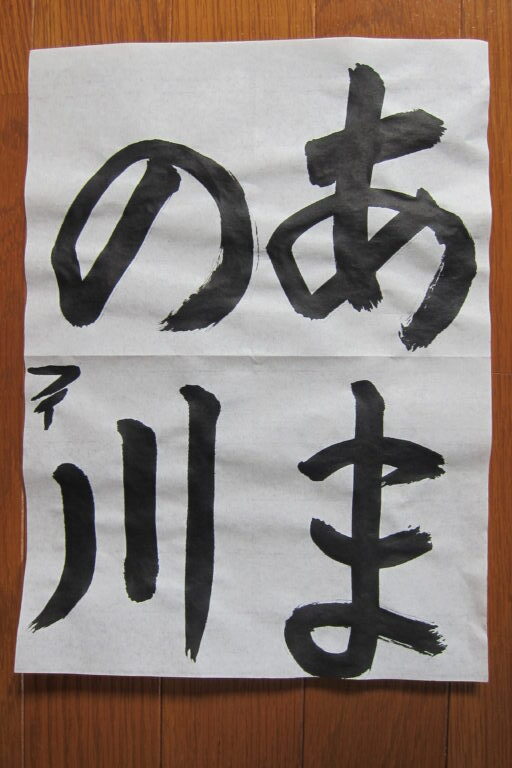 あま
の川
アイ